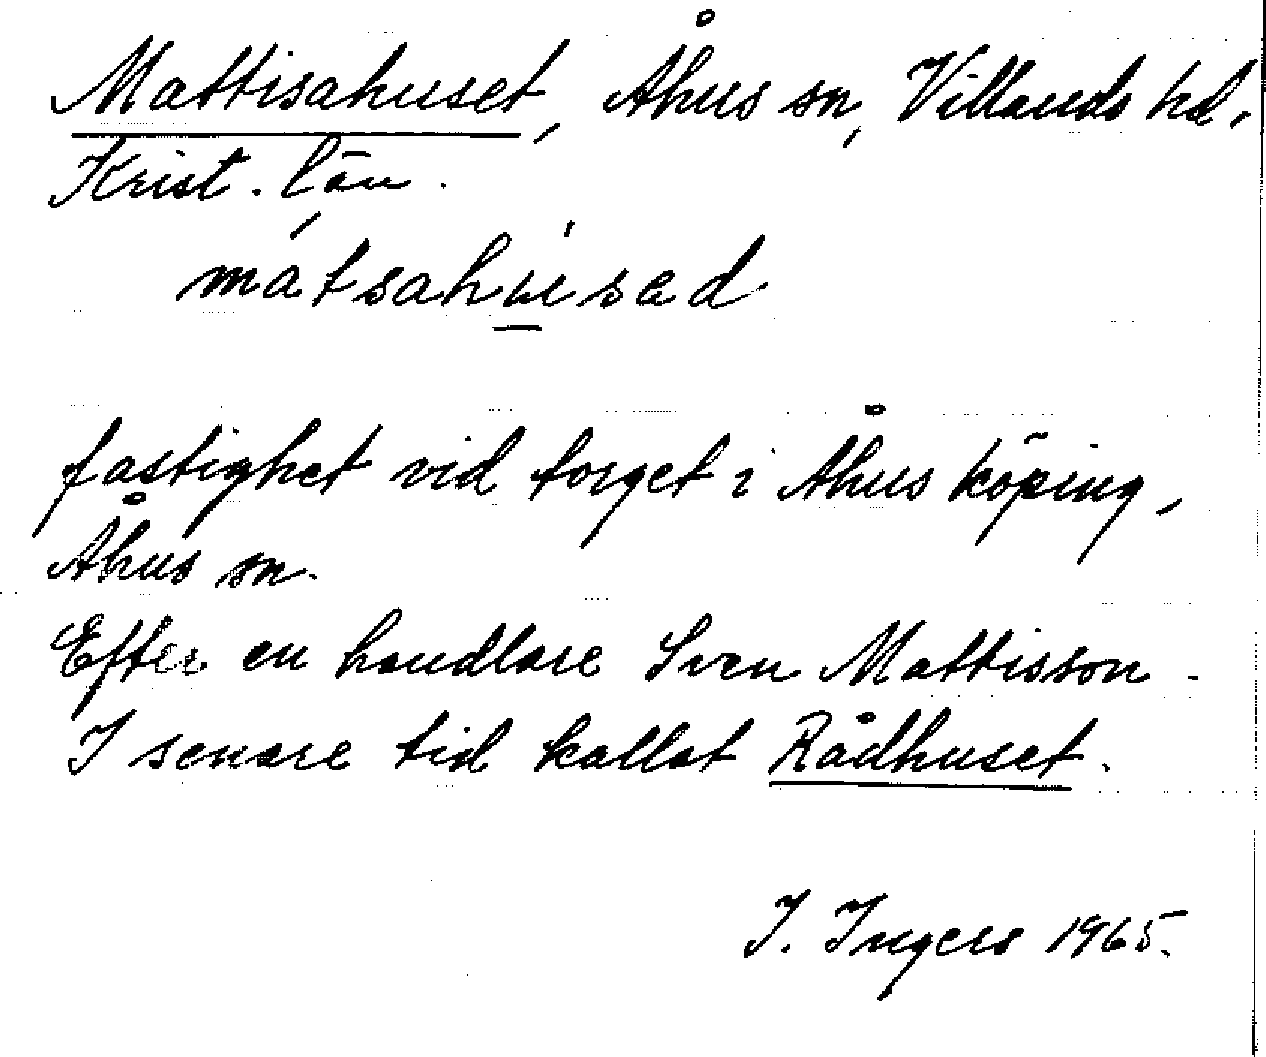 Mattisahuset, Åhus sn, Villands hd.
Krist. län.
mátsahu̲̍sad
fastighet vid torget i Åhus köping,
Åhus sn.
Efter en handlare Sven Mattisson.
I senare tid kallat Rådhuset.
I. Ingers 1965.